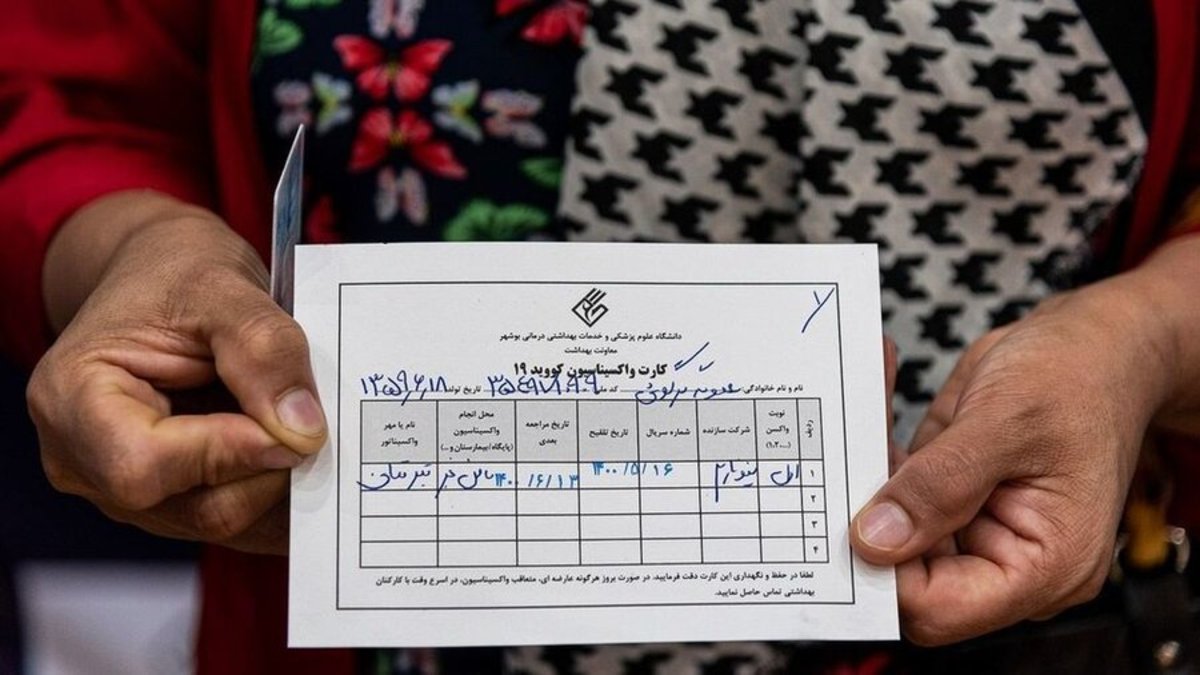 ۷
دانشگاه علوم پزشکی و خدمات بهداشتی درمانی بوشهر
معاونت بهداشت
کارت واکسیناسیون کووید ۱۹
نام و نام خانوادگی: کد ملی تاریخ تولد: ۱۳۵۹/۶/۱۸
ردیف نوبت واکسن (۱،۲،...) شرکت سازنده شماره سریال تاریخ تلقیح تاریخ مراجعه بعدی محل انجام واکسیناسیون (پایگاه/بیمارستان و ...) نام یا مهر واکسیناتور
۱ اول ۱۴۰۰/۵/۱۶ ۱۴۰۰/۶/۱۳
۲
۳
۴
لطفا در حفظ و نگهداری این کارت دقت فرمایید. در صورت بروز هرگونه عارضه ای، متعاقب واکسیناسیون، در اسرع وقت با کارکنان
بهداشتی تماس حاصل نمایید.